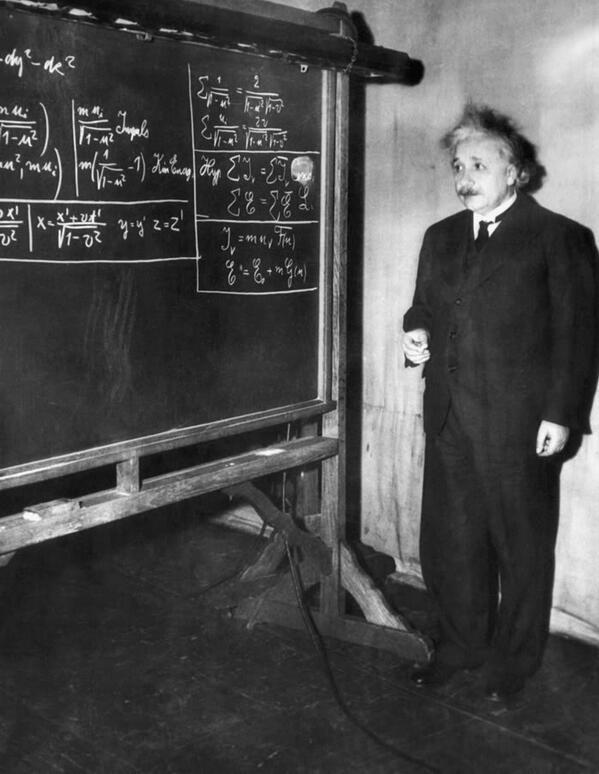 -dy²-dz²
muᵢ/√(1-u²) ) | muᵢ/√(1-u²) Impuls
u², muᵢ) | m(1/√(1-u²) -1) Kin Energ.
x = (x'+vt')/√(1-v²) y=y' z=z'
Σ 1/√(1-u²) = 2/(√(1-u²)√(1-v²))
Σ uᵢ/√(1-u²) = 2v/(√(1-u²)√(1-v²))
Hyp. ΣJᵥ = ΣJ̄ᵥ
ΣE = ΣĒ
Jᵥ = muᵥ F(u)
E = E₀ + m G(u)